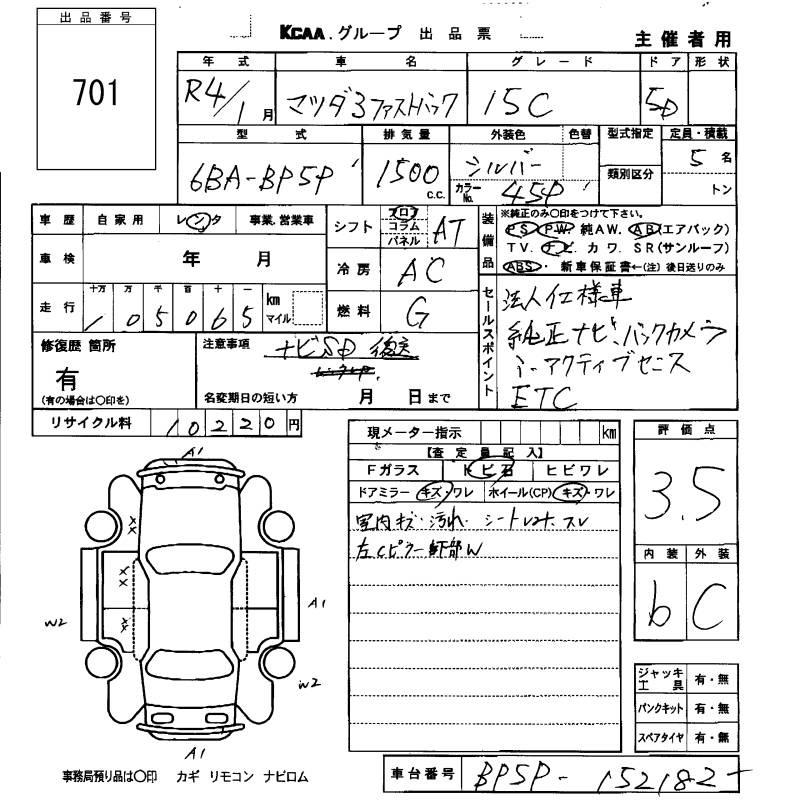 出品番号
701
KCAA.グループ 出品票
主催者用
年式 車名 グレード ドア 形状
R4/1月 マツダ3ファストバック 15C 5D
型式 排気量 外装色 色替 型式指定 定員・積載
6BA-BP5P 1500 C.C. シルバー 5名
カラーNo. 45P 類別区分 トン
車歴 自家用 レンタ 事業.営業車
シフト フロア コラム パネル AT
車検 年 月
冷房 AC
走行 十万 万 千 百 十 一 km マイル
105065
燃料 G
装備品
※純正のみ○印をつけて下さい。
PS PW 純AW. AB(エアバック)
TV. ナビ. カワ. SR(サンルーフ)
ABS・ 新車保証書←(注)後日送りのみ
セールスポイント
法人仕様車
純正ナビ、バックカメラ
アクティブセンス
ETC
修復歴 箇所
有
(有の場合は○印を)
注意事項
ナビSD 後送
名変期日の短い方 月 日まで
リサイクル料 10220円
現メーター指示 km
【査定員記入】
Fガラス トビ石 ヒビワレ
ドアミラー キズ・ワレ ホイール(CP) キズ・ワレ
室内キズ・汚れ シート スレ
左Cピラー W
評価点
3.5
内装 外装
b C
A1
xx
xx
xx
A1
W2
W2
A1
ジャッキ工具 有・無
パンクキット 有・無
スペアタイヤ 有・無
事務局預り品は○印 カギ リモコン ナビロム
車台番号 BP5P-152182